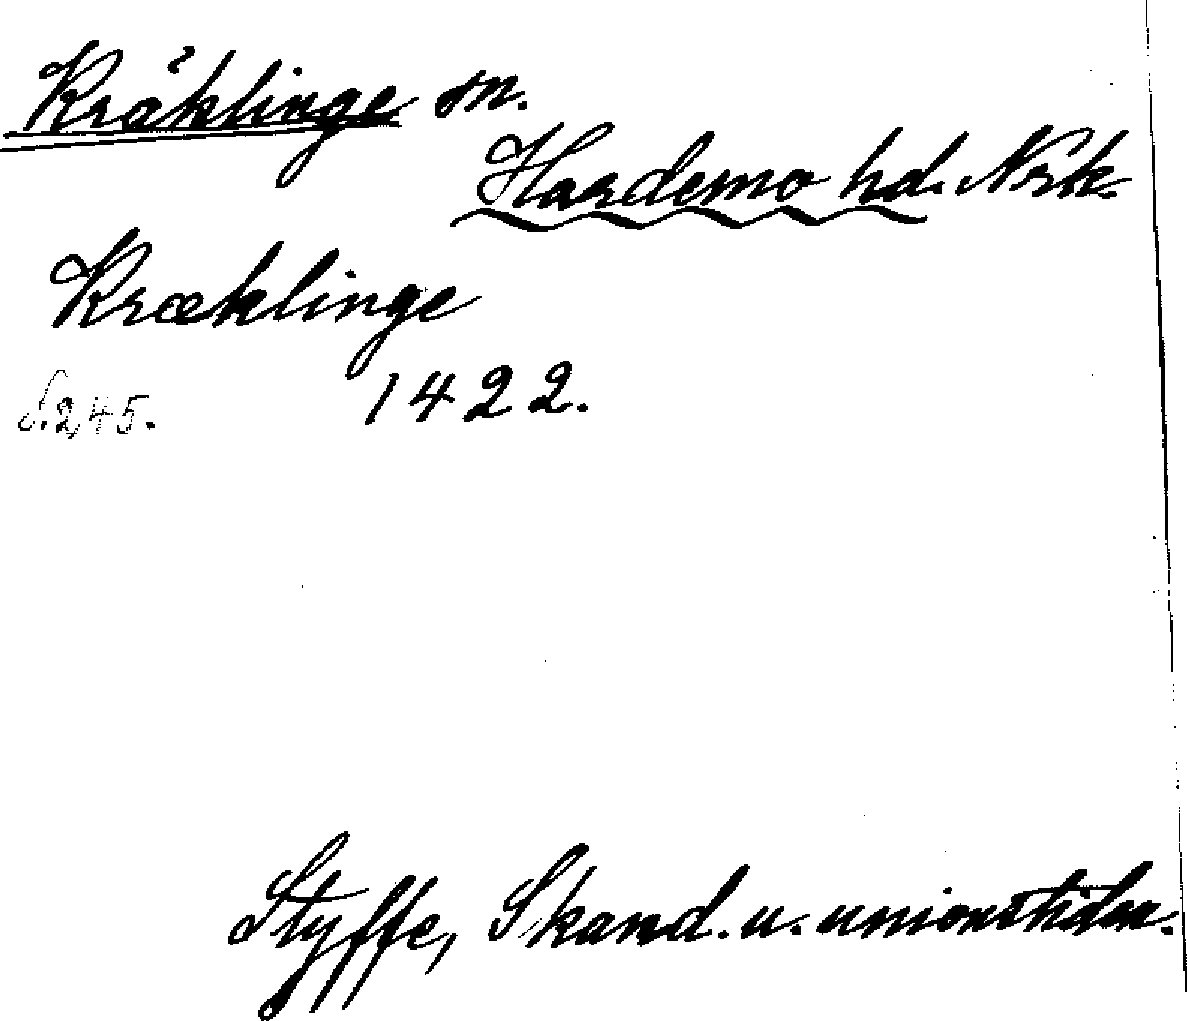 Kräklinge sn.
Hardemo hd. Nrk.
Kræklinge
1422.
S. 245.
Styffe, Skand. u. unionstiden.